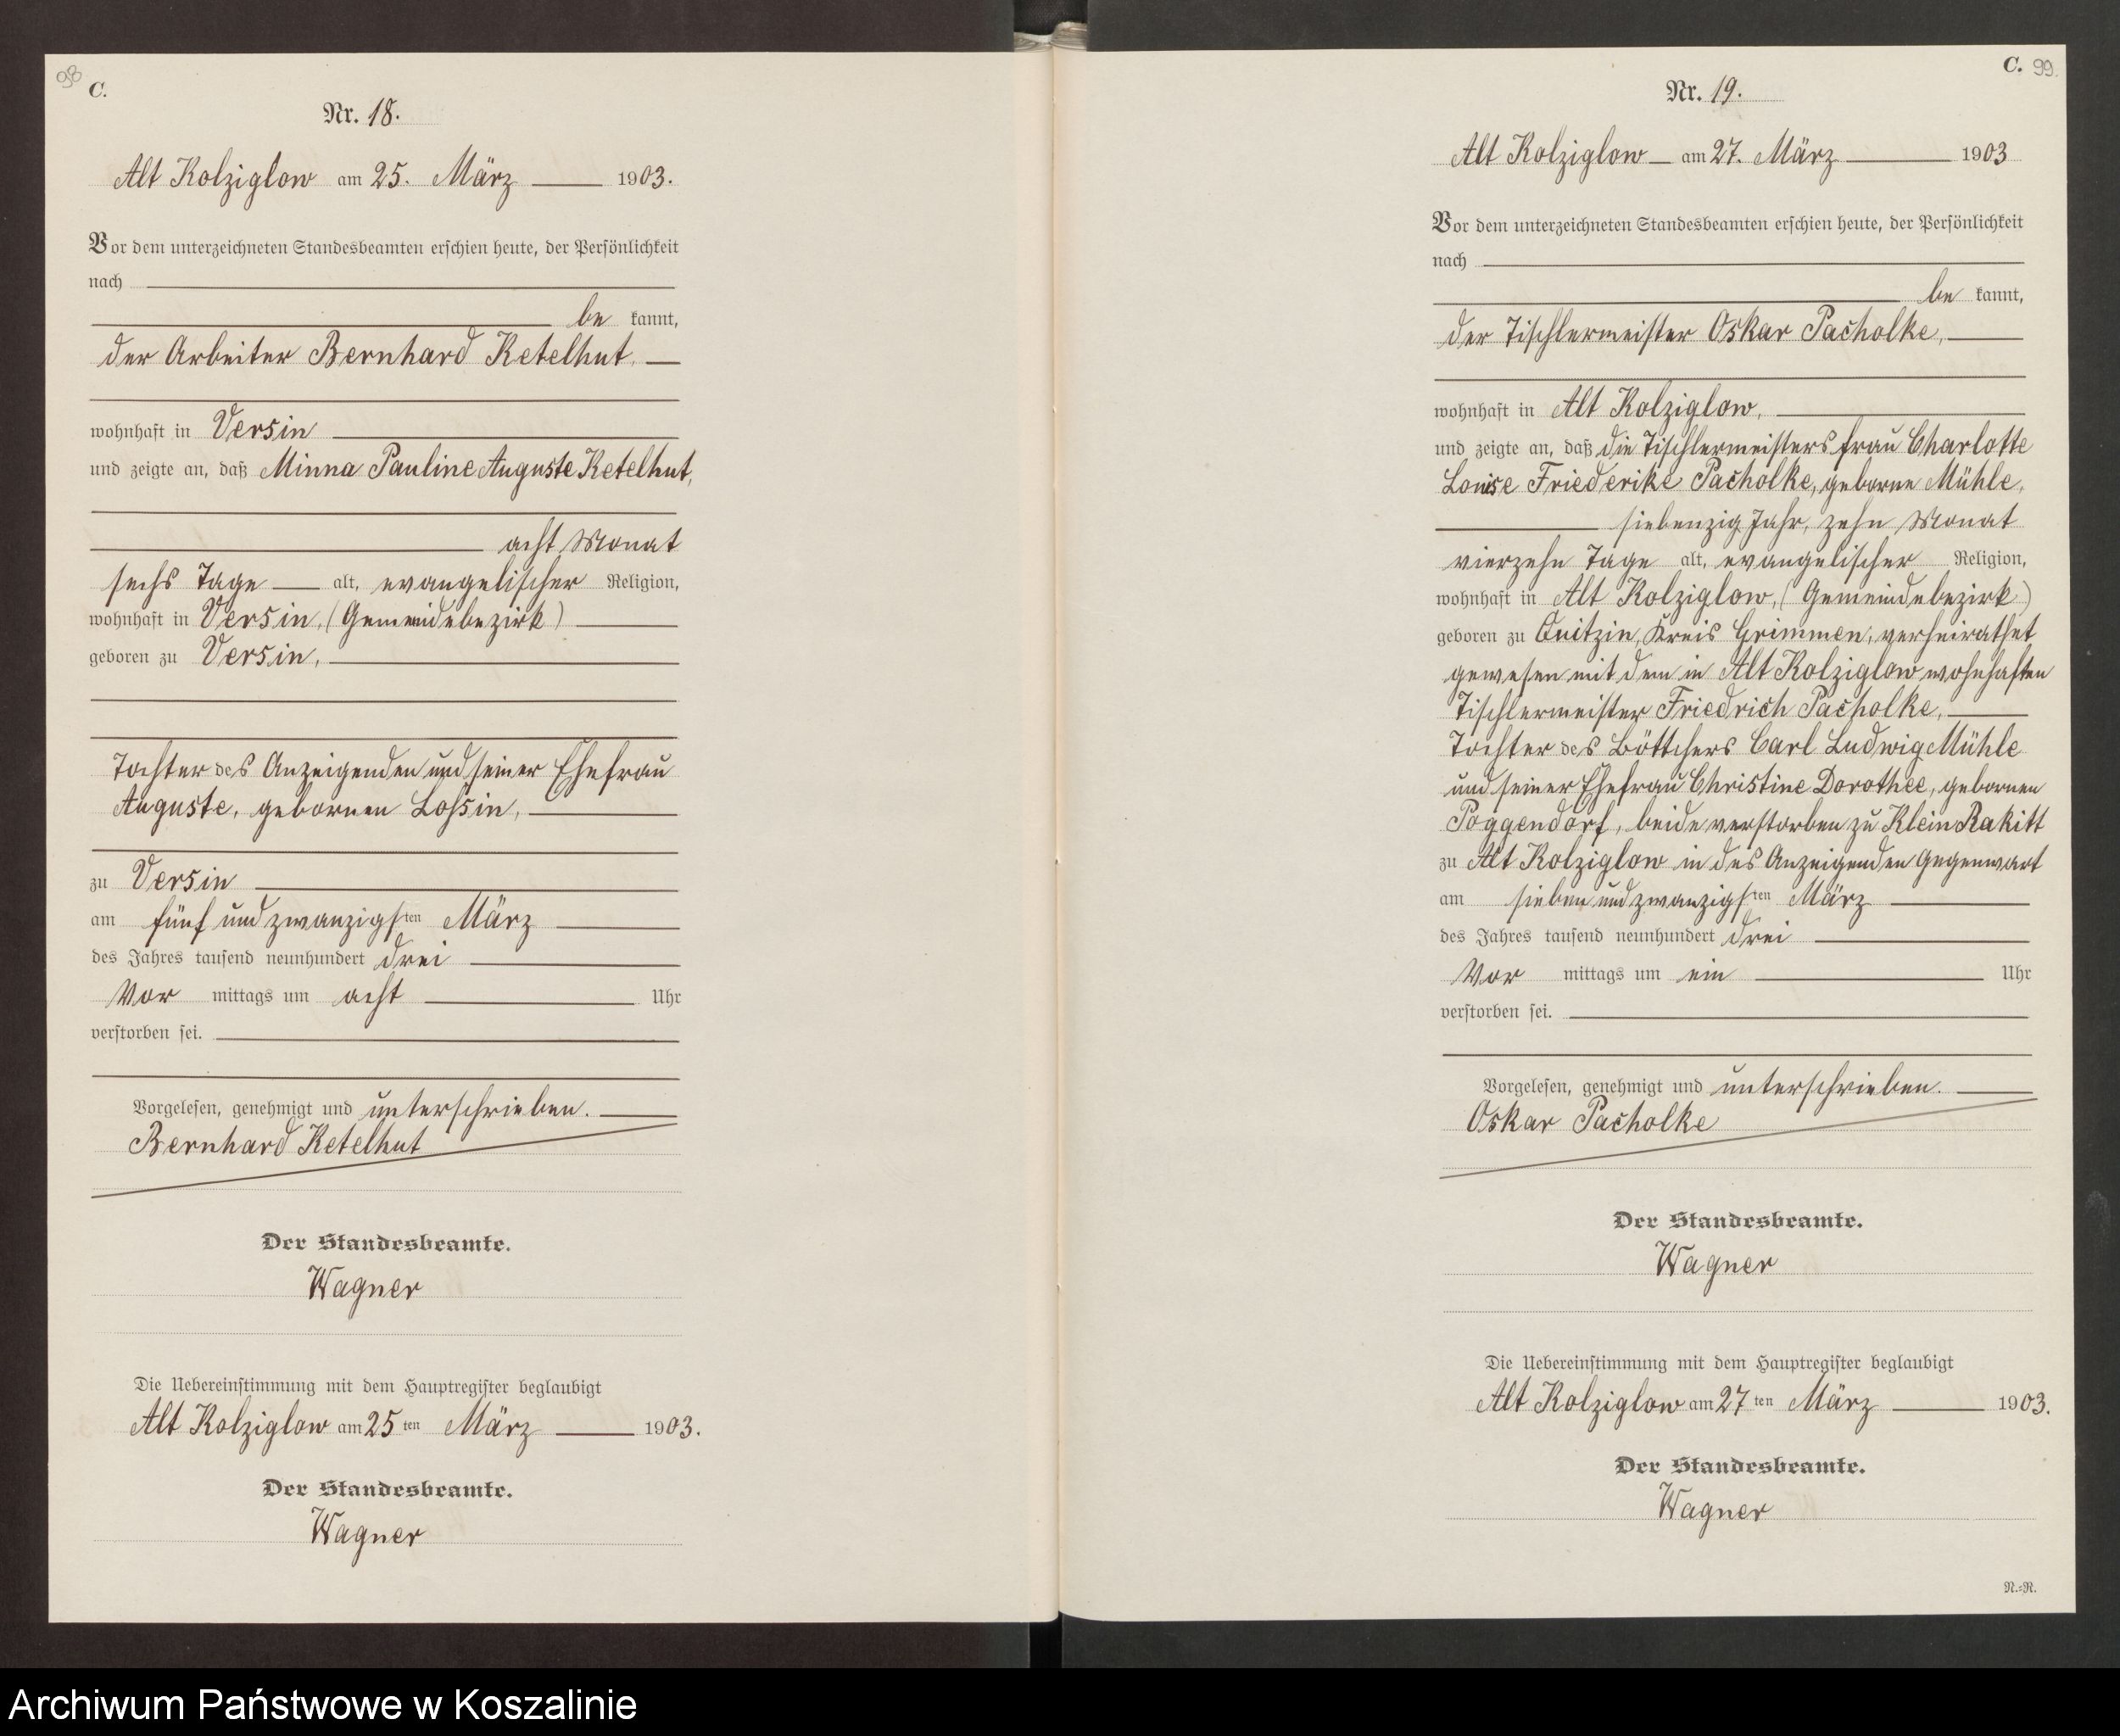 98
C.
Nr. 18.
Alt Kolziglow am 25. März 1903.
Vor dem unterzeichneten Standesbeamten erschien heute, der Persönlichkeit
nach
be kannt,
der Arbeiter Bernhard Ketelhut,
wohnhaft in Versin
und zeigte an, daß Minna Pauline Auguste Ketelhut,
acht Monat
sechs Tage alt, evangelischer Religion,
wohnhaft in Versin, (Gemeindebezirk)
geboren zu Versin,
Tochter des Anzeigenden und seiner Ehefrau
Auguste, gebornen Lossin,
zu Versin
am fünf und zwanzigsten März
des Jahres tausend neunhundert drei
Vor mittags um acht Uhr
verstorben sei.
Vorgelesen, genehmigt und unterschrieben.
Bernhard Ketelhut
Der Standesbeamte.
Wagner
Die Uebereinstimmung mit dem Hauptregister beglaubigt
Alt Kolziglow am 25 ten März 1903.
Der Standesbeamte.
Wagner
C. 99.
Nr. 19.
Alt Kolziglow am 27. März 1903
Vor dem unterzeichneten Standesbeamten erschien heute, der Persönlichkeit
nach
be kannt,
der Tischlermeister Oskar Pacholke,
wohnhaft in Alt Kolziglow,
und zeigte an, daß die Tischlermeisters frau Charlotte
Louise Friederike Pacholke, geborne Mühle,
siebenzig Jahr, zehn Monat
vierzehn Tage alt, evangelischer Religion,
wohnhaft in Alt Kolziglow, (Gemeindebezirk)
geboren zu Quitzin, Kreis Grimmen, verheirathet
gewesen mit dem in Alt Kolziglow wohnhaften
Tischlermeister Friedrich Pacholke,
Tochter des Böttchers Carl Ludwig Mühle
und seiner Ehefrau Christine Dorothee, gebornen
Poggendorf, beide verstorben zu Klein Rakitt
zu Alt Kolziglow in des Anzeigenden Gegenwart
am sieben und zwanzigsten März
des Jahres tausend neunhundert drei
Vor mittags um ein Uhr
verstorben sei.
Vorgelesen, genehmigt und unterschrieben.
Oskar Pacholke
Der Standesbeamte.
Wagner
Die Uebereinstimmung mit dem Hauptregister beglaubigt
Alt Kolziglow am 27 ten März 1903.
Der Standesbeamte.
Wagner
N.=N.
Archiwum Państwowe w Koszalinie